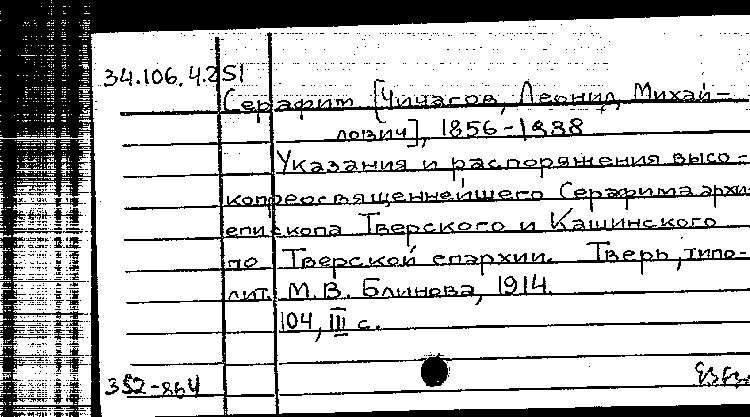 34.106.4.251
Серафим [Чичагов, Леонид Михай-
лович], 1856-1938
Указания и распоряжения высо-
копреосвященнейшего Серафима архи
епископа Тверского и Кашинского
по Тверской епархии. Тверь, типо-
лит. М.В. Блинова, 1914.
104, III с.
352-864